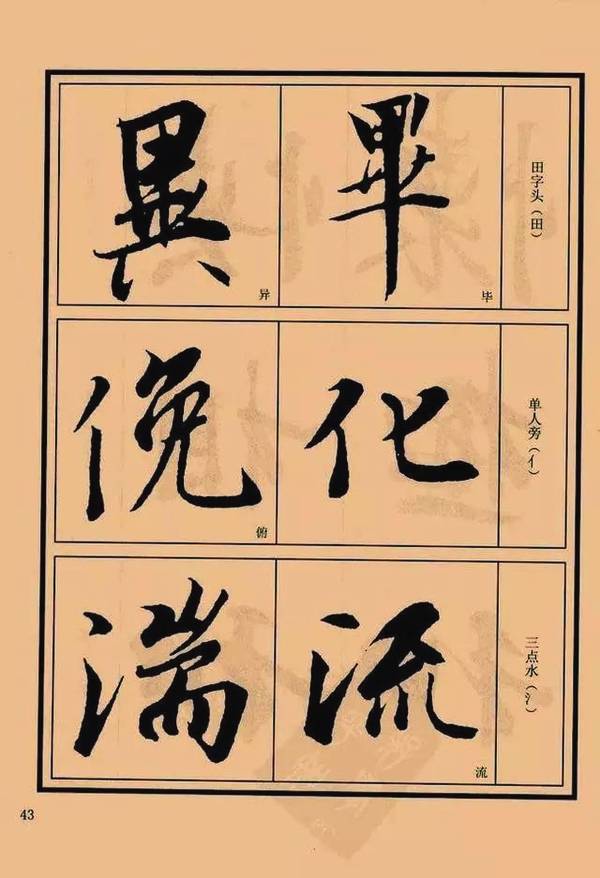 田字头（田）
畢
毕
異
异
单人旁（亻）
化
俛
俯
三点水（氵）
流
流
湍
43